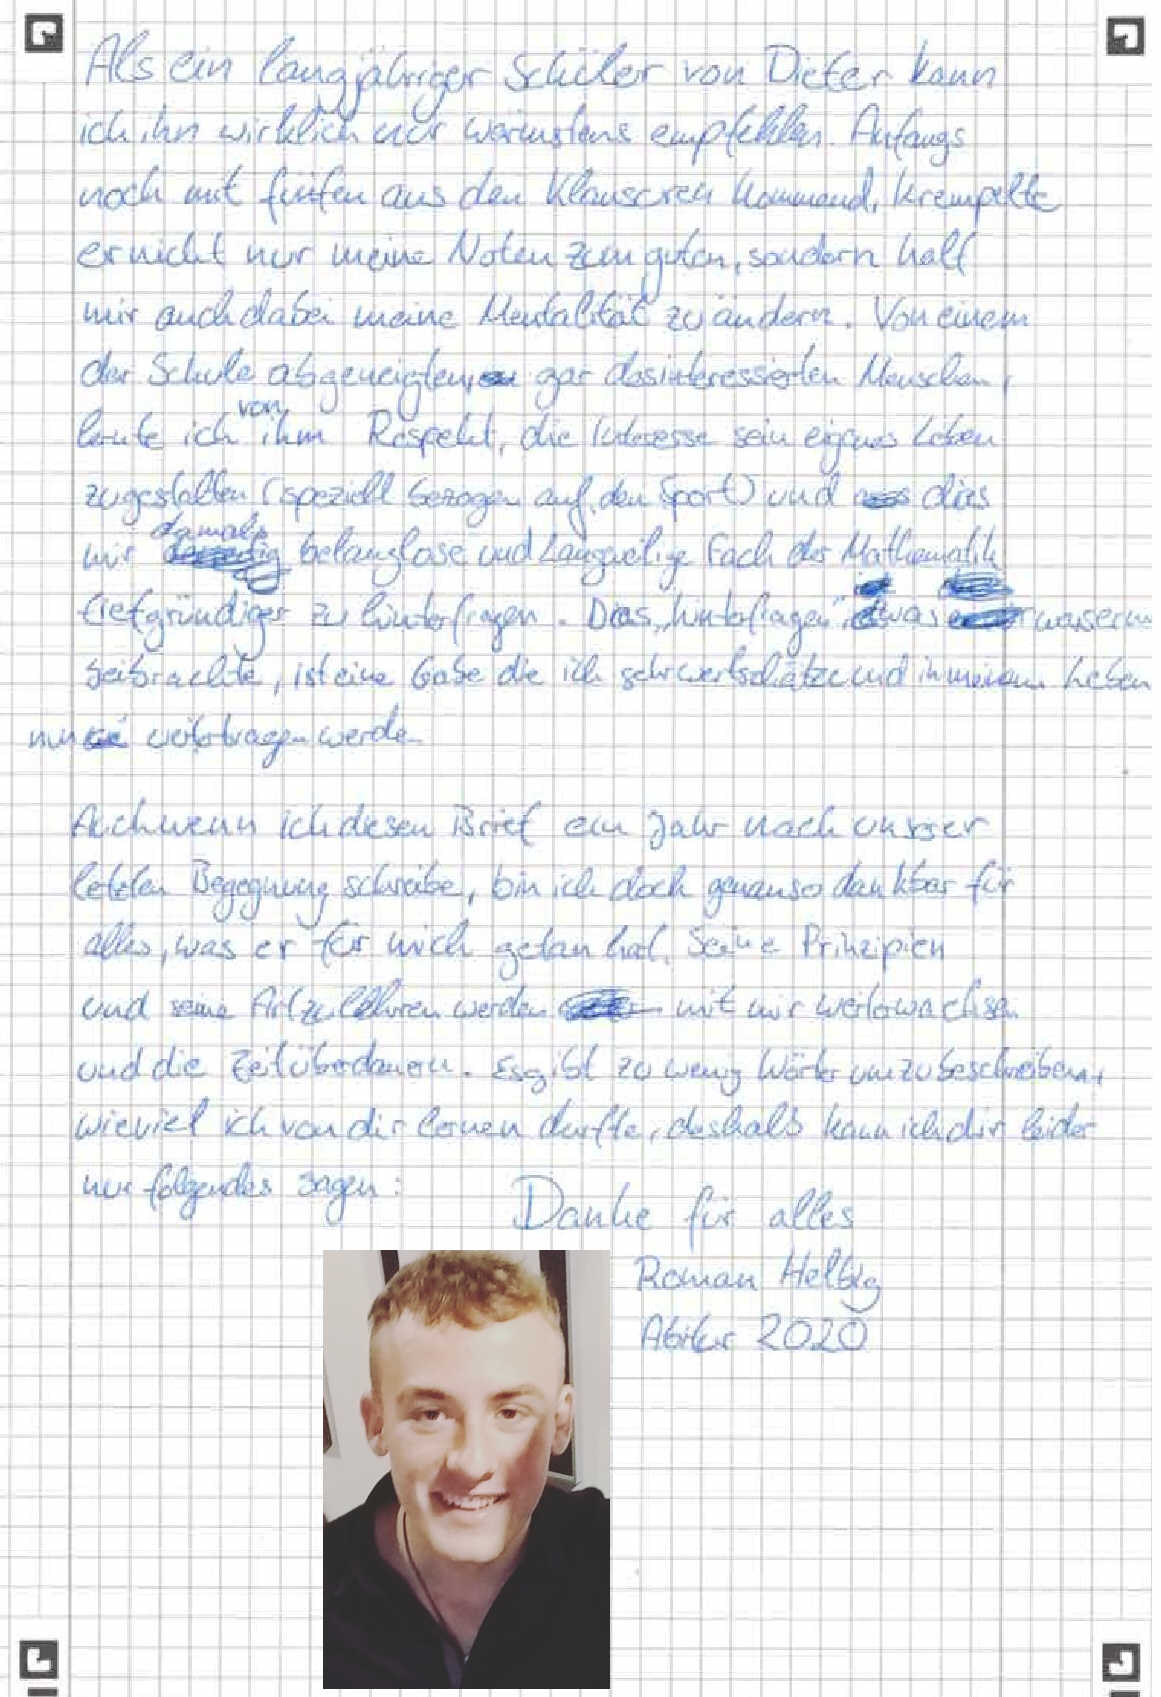 Als ein langjähriger Schüler von Dieter kann
ich ihn wirklich nur wärmstens empfehlen. Anfangs
noch mit fünfen aus den Klausuren kommend, krempelte
er nicht nur meine Noten zum guten, sondern half
mir auch dabei meine Mentalität zu ändern. Von einem
der Schule abgeneigten, gar desinteressierten Menschen,
lernte ich von ihm Respekt, die Interesse sein eigenes Leben
zugestalten (speziell bezogen auf den Sport) und das
mir damals belanglose und Langweilige Fach der Mathematik
tiefgründiger zu hinterfragen. Das „hinterfragen", was er
beibrachte, ist eine Gabe die ich sehr wertschätze und in meinem Leben
nun weitertragen werde.
Auch wenn ich diesen Brief ein Jahr nach unserer
letzten Begegnung schreibe, bin ich doch genauso dankbar für
alles, was er für mich getan hat. Seine Prinzipien
und seine Art zu lehren werden mit mir weiterwachsen
und die Zeit überdauern. Es gibt zu wenig Wörter um zu beschreiben,
wieviel ich von dir lernen durfte, deshalb kann ich dir leider
nur folgendes sagen:
Danke für alles
Roman Helbig
Abitur 2020